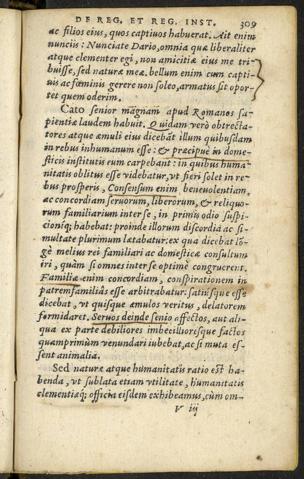 DE REG. ET REG. INST. 309
ac filios eius, quos captiuos habuerat. Ait enim
nuncius: Nunciate Dario, omnia quæ liberaliter
atque clementer egi, non amicitiæ eius me tri
buisse, sed naturæ meæ. bellum enim cum capti-
uis ac fœminis gerere non soleo, armatus sit opor-
tet quem oderim.
Cato senior magnam apud Romanos sa-
pientiæ laudem habuit. Quidam verò obtrecta-
tores atque æmuli eius dicebāt illum quibusdam
in rebus inhumanum esse: & præcipuè in dome-
sticis institutis eum carpebant: in quibus huma-
nitatis oblitus esse videbatur, vt fieri solet in re-
bus prosperis. Consensum enim, beneuolentiam,
ac concordiam seruorum, liberorum, & reliquo-
rum familiarium inter se, in primis odio suspi-
cioniq; habebat: proinde illorum discordia ac si-
multate plurimum lætabatur: ex qua dicebat lō-
gè melius rei familiari ac domesticæ consultum
iri, quàm si omnes inter se optimè congruerent.
Familiæ enim concordiam, conspirationem in
patremfamiliâs esse arbitrabatur: satisque esse
dicebat, vt quisque æmulos veritus, delatorem
formidaret. Seruos deinde senio affectos, aut ali-
qua ex parte debiliores imbecilliorésque factos
quamprimùm venundari iubebat, ac si muta es-
sent animalia.
Sed naturæ atque humanitatis ratio est ha-
benda, vt sublata etiam vtilitate, humanitatis
clementiæq; officia eisdem exhibeamus, cùm om-
V iij